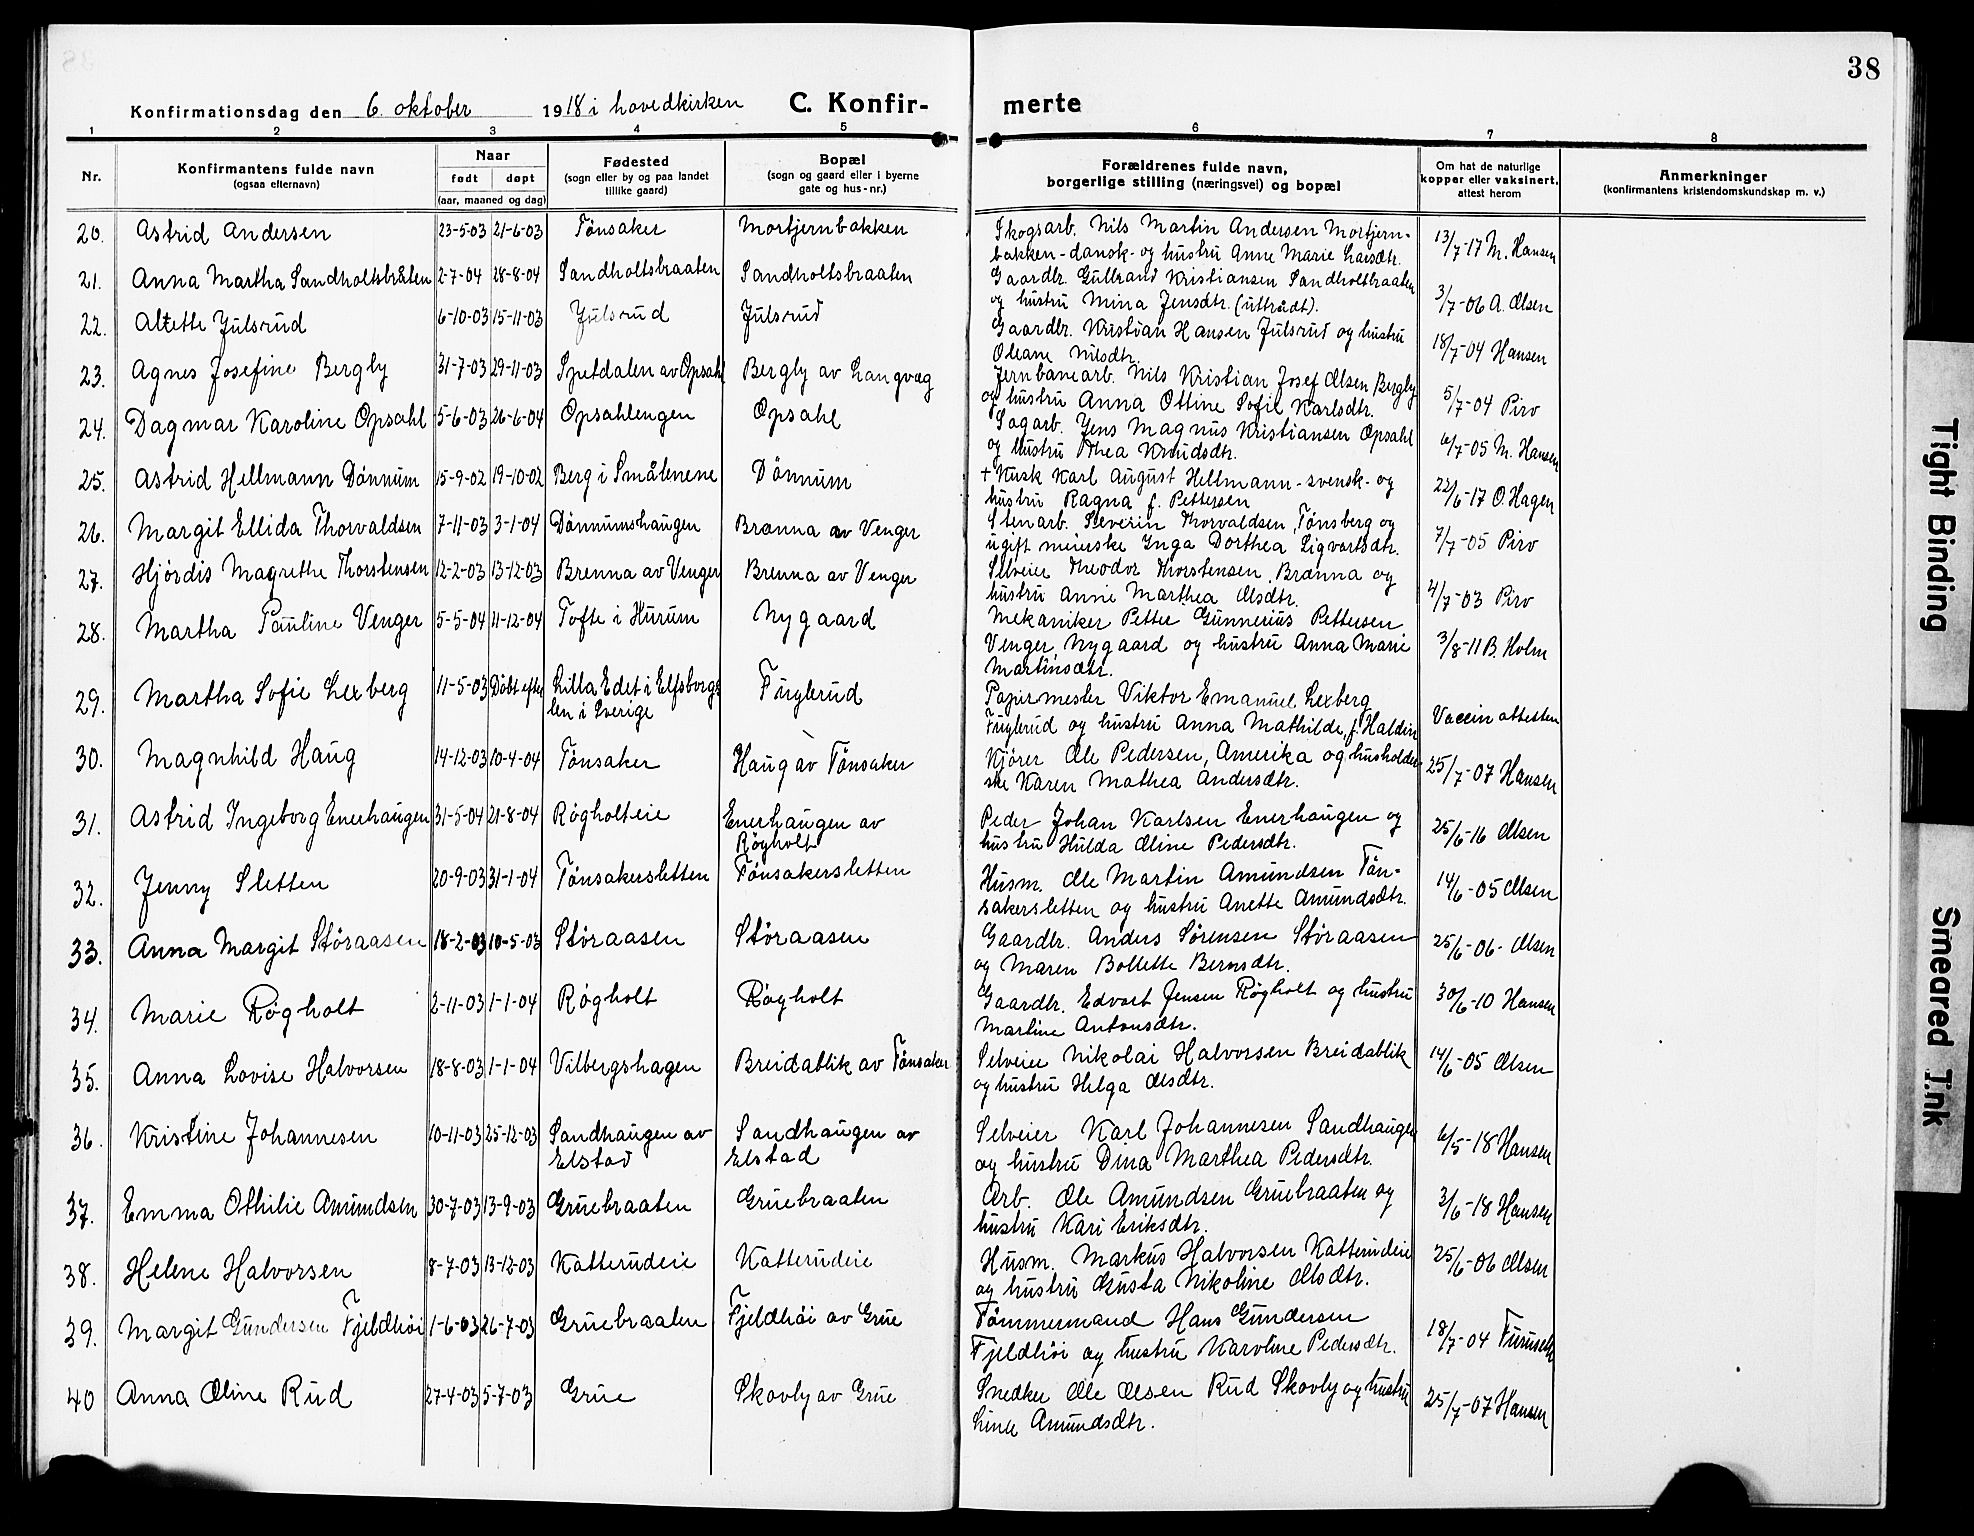 38
Konfirmationsdag den 6. oktober 1918 i hovedkirken C. Konfir-
merte
1 2 3 4 5 6 7 8
Nr.
Konfirmantens fulde navn
(ogsaa efternavn)
Naar
født døpt
(aar, maaned og dag)
Fødested
(sogn eller by og paa landet
tillike gaard)
Bopæl
(sogn og gaard eller i byerne
gate og hus-nr.)
Forældrenes fulde navn,
borgerlige stilling (næringsvei) og bopæl
Om hat de naturlige
kopper eller vaksinert,
attest herom
Anmerkninger
(konfirmantens kristendomskundskap m. v.)
20. Astrid Andersen 23-5-03 21-6-03 Tønsaker Mortjernbakken
Skogsarb. Nils Martin Andersen Mortjern-
bakken - dansk - og hustru Anne Marie Larsdtr.
13/7-17 M. Hansen
21. Anna Martha Sandholtsbråten 2-7-04 28-8-04 Sandholtsbraaten Sandholtsbraaten
Gaardbr. Gulbrand Kristiansen Sandholtbraaten
og hustru Mina Jensdtr. (uttrådt).
3/7-06 A. Olsen
22. Alette Julsrud 6-10-03 15-11-03 Julsrud Julsrud
Gaardbr. Kristian Hansen Julsrud og hustru
Oleane Nilsdtr.
18/7-04 Hansen
23. Agnes Josefine Bergby 31-7-03 29-11-03 Spetdalen av Opsahl Bergby av Langvæg
Jernbanearb. Nils Kristian Josef Olsen Bergby
og hustru Anna Ottine Sofie Karlsdtr.
5/7-04 Piro
24. Dagmar Karoline Opsahl 5-6-03 26-6-04 Opsahlengen Opsahl
Sagarb. Jens Magnus Kristiansen Opsahl
og hustru Thea Knudsdtr.
6/7-05 M. Hansen
25. Astrid Hellmann Dønnum 15-9-02 19-10-02 Berg i Smålenene Dønnum
+ Kusk Karl August Hellmann - svensk - og
hustru Ragna f. Pettersen
22/6-17 O. Hagen
26. Margit Ellida Thorvaldsen 7-11-03 3-1-04 Dønnumshaugen Brænna av Venger
Stenarb. Severin Thorvaldsen, Tønsberg og
ugift meierske Inga Dorthea Sigvartsdtr.
7/7-05 Piro
27. Hjørdis Magrethe Thorstensen 12-2-03 13-12-03 Brenna av Venger Brenna av Venger
Selveier Theodor Thorstensen, Brænna og
hustru Anne Marthea Olsdtr.
4/7-03 Piro
28. Martha Pauline Venger 5-5-04 11-12-04 Tofte i Hurum Nygaard
Mekaniker Petter Gunnerius Pettersen
Venger, Nygaard og hustru Anna Marie
Martinsdtr.
3/8-11 B. Holm
29. Martha Sofie Lexberg 11-5-03 Døbt efter Lilla Edet i Elfsborgs
len i Sverige
Fuglerud
Papirmester Viktor Emanuel Lexberg
Fuglerud og hustru Anna Mathilde, f. Haldin
Vaccin attesten
30. Magnhild Haug 14-12-03 10-4-04 Tønsaker Haug av Tønsaker
Kjører Ole Pedersen, Amerika og husholder-
ske Karen Mathea Andersdtr.
25/7-07 Hansen
31. Astrid Ingeborg Enerhaugen 31-5-04 21-8-04 Røgholteie Enerhaugen av
Røgholt
Peder Johan Karlsen Enerhaugen og
hustru Hulda Oline Pedersdtr.
25/5-16 Olsen
32. Jenny Sletten 20-9-03 31-1-04 Tønsakersletten Tønsakersletten
Husm. Ole Martin Amundsen Tøn-
sakersletten og hustru Anette Amundsdtr.
14/6-05 Olsen
33. Anna Margit Støraasen 18-2-03 10-5-03 Støraasen Støraasen
Gaardbr. Anders Sørensen Støraasen
og Maren Bollette Berntsdtr.
25/6-06- Olsen
34. Marie Røgholt 2-11-03 1-1-04 Røgholt Røgholt
Gaardbr. Edvart Jensen Røgholt og hustru
Martine Antonsdtr.
30/6-10 Hansen
35. Anna Lovise Halvorsen 18-8-03 1-1-04 Vilbergshagen Breidablik av Tønsaker
Selveier Nikolai Halvorsen Breidablik
og hustru Helga Olsdtr.
14/6-05 Olsen
36. Kristine Johannesen 10-11-03 25-12-03 Sandhaugen av
Elstad
Sandhaugen av
Elstad
Selveier Karl Johannesen Sandhaugen
og hustru Dina Marthea Pedersdtr.
6/5-18 Hansen
37. Emma Othilie Amundsen 30-7-03 13-9-03 Gruebraaten Gruebraaten
Arb. Ole Amundsen Gruebraaten og
hustru Kari Eriksdtr.
3/6-18 Hansen
38. Helene Halvorsen 8-7-03 13-12-03 Katterudeie Katterudeie
Husm. Markus Halvorsen Katterudeie
og hustru Gusta Nikoline Olsdtr.
25/6-06 Olsen
39. Margit Gundersen Fjeldhøi 1-6-03 26-7-03 Gruebraaten Fjeldhøi av Grue
Tømmermand Hans Gundersen
Fjeldhøi og hustru Karoline Pedersdtr.
18/7-04 Furuseth
40 Anna Oline Rud 27-4-03 5-7-03 Grue Skovly av Grue
Snedker Ole Olsen Rud Skovly og hustru
Line Amundsdtr.
25/7-07 Hansen
Tight Binding
Smeared Ink